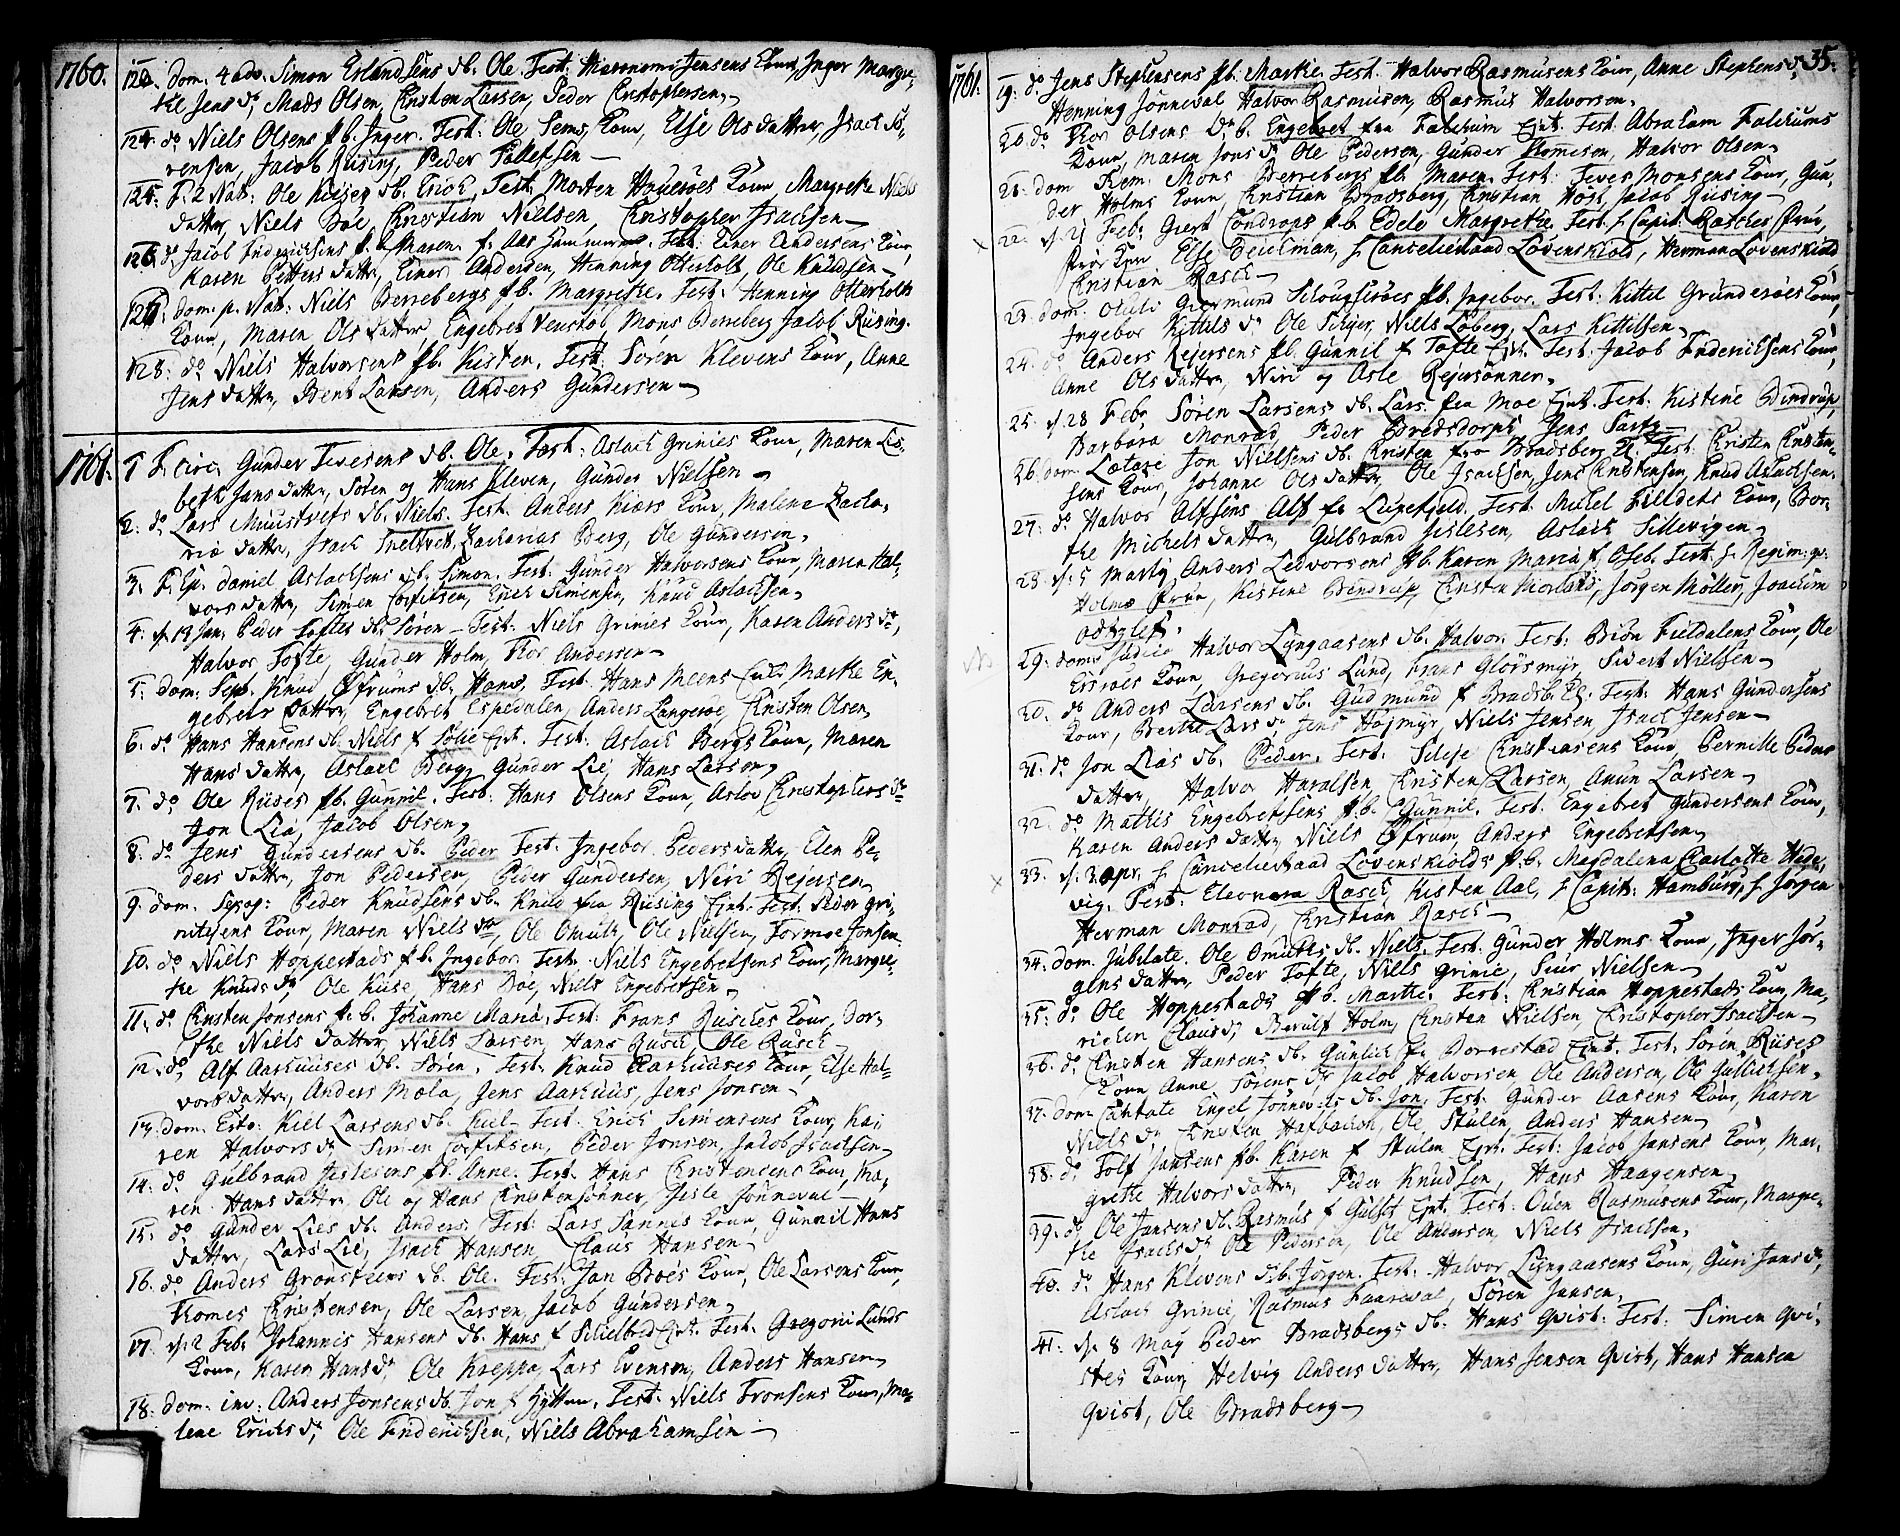 1760.
123. dom. 4 adv. Simon Erlandsens db. Ole. Test. Hieronymi Jensens Kone, Inger Margre-
the Jens dr, Mads Olsen, Christen Larsen, Peder Christophersen.
124. do Niels Olsens pb. Inger. Test: Ole Sems Kone, Else Ols datter, Isach Sö-
rensen, Jacob Rüsing, Peder Tollefsen
125. F. 2 Nat: Ole db. Erich. Test. Morten Kone, Margrethe Niels
datter, Niels Böe, Christian Nielsen, Christopher Isachsen
126. do Jacob Friderichsens pb. Maren. f. Test. Einer Andersens Kone,
Karen Petters datter, Einer Andersen, Henning Otterholt, Ole Knudsen
127. dom. p. Nat: Niels Berrebergs pb. Margrethe. Test: Henning Otterholts
Kone, Maren Ols datter, Engebret Venstöb, Mons Berreberg, Jacob Rüsing.
128. do Niels Halvorsens pb. Kisten. Test. Sören Klevens Kone, Anne
Jens datter, Bent Larsen, Anders Gundersen
1761.
1. F. circ. Gunder Tevesens db. Ole. Test: Aslach Grinies Kone, Maren Lis-
beth Jans datter, Sören og Hans Kleven, Gunder Nielsen
2. do Lars db. Niels. Test. Anders Kiærs Kone, Malene Zacha-
riæ datter, Isach Zacharias Berg, Ole Gundersen.
3. F. Ep. Daniel Aslachsens db. Simon. Test. Gunder Halvorsens Kone, Maren Hal-
vors datter, Simen Corfitsen, Erich Simensen, Knud Aslachsen.
4. d. 13 Jan. Peder Toftes db. Sören. Test: Niels Grinies Kone, Karen Anders dr,
Halvor Tofte, Gunder Holm, Thor Andersen
5. dom. Sept. Knud Øfrums db. Hans. Test. Hans Meens Marthe En-
gebrets datter, Engebret Espedalen, Anders Langeröe, Christen Olsen
6. do Hans Hansens db. Niels f. Test. Aslach Bergs Kone, Maren
Hans datter, Aslach Berg, Gunder Lie, Hans Larsen
7. do Ole Rüses pb. Gunnil. Test: Hans Olsens Kone, Aslov Christophers dr
Jon Lia, Jacob Olsen
8. do Jens Gundersens db. Peder Test. Ingebor Peders datter, Elen Pe-
ders datter, Jon Pedersen, Peder Gundersen, Niri Rejersen
9. dom. Sexag: Peder Knudsens db. Knud fra Rüsing Test. Peder Gri-
Kone, Maren Niels dr, Ole Omult, Ole Nielsen, Tormoe Jonsen
10. do Niels Hoppestads pb. Ingebor. Test: Niels Engebretsens Kone, Margre-
the Knuds dr, Ole Kise, Hans Böe, Niels Engebretsen
11. do Christen Jonsens pb. Johanne Maria. Test: Frans Rusches Kone, Dor-
the Niels datter, Niels Larsen, Hans Rusch, Ole Rusch
12. do Alf Aarhuuses db. Sören. Test. Knud Aarhuuses Kone, Else Hal-
vors datter, Anders Mæla, Jens Aarhuus, Jens Jonsen
13. dom. Esto: Kiel Larsens db. Kiel. Test. Erich Simensens Kone, Ka-
ren Halvors dr, Simen Corfitsen, Peder Jonsen, Jacob Isachsen
14. do Gulbrand Gislesens pb. Anne. Test. Hans Christensens Kone, Ma-
ren Hans datter, Ole og Hans Christensönner, Gisle Jönneval
15. do Gunder Lies db. Anders. Test: Lars Sannes Kone, Gunnil Hans
datter, Lars Lie, Isach Hansen, Claus Hansen
16. do Anders Grönsteens db. Ole. Test. Jan Böes Kone, Ole Larsens Kone,
Thomes Christensen, Ole Larsen, Jacob Gundersen
17. d. 2 Feb. Johannis Hansens db. Hans f. Test. Gregorii Lunds
Kone, Karen Hans dr, Ole Kreppa, Lars Evensen, Anders Hansen
18. dom. inv: Anders Jonsens db. Jon f. Hytten. Test. Niels Tronsens Kone, Ma-
lene Erichs dr, Ole Friderichsen, Niels Abrahamsen
1761.
35.
19. do Jens Stephensens pb. Marthe. Test. Halvor Rasmusens Kone, Anne Stephens dr,
Henning Jönneval, Halvor Rasmusen, Rasmus Halvorsen.
20. do Thor Olsens db. Engebret fra Falchum Test. Abraham Falchums
Kone, Maren Jons dr, Ole Pedersen, Gunder Thomesen, Halvor Olsen
21. dom. Rem. Mons Berrebergs pb. Maren. Test: Teves Monsens Kone, Gun-
der Holms Kone, Christian Bradsberg, Christian Höst, Jacob Rüsing
22. d. 21 Feb: Giert pb. Edele Margrethe. Test. H. Capit. Rasches Frue,
Else Teilman, H. Cancelieraad Lövenskiold, Herman Lövenskiold
Christian Rasch
23. dom. Oculi Giermund pb. Ingebor. Test: Kittil Grunderöes Kone,
Ingebor Kittils dr, Ole Niels Löberg, Lars Kittilsen
24. do Anders Rejersens pb. Gunnil f. Tofte Test. Jacob Friderichsens Kone,
Anne Ols datter, Niri og Asle Rejersönner.
25. d. 28 Febr. Sören Larsens db. Lars fra Moe Test. Kistine Bendrup,
Barbara Monrad, Peder Bredsdorph, Jens
26. dom. Lætare Jon Nielsens db. Christen fra Bradsberg Test. Christen Christen-
sens Kone, Johanne Ols datter, Ole Isachsen, Jens Christensen, Knud Aslachsen.
27. do Halvor Alfsens Alf fr Lunefjeld. Test. Michel Kone, Dor-
the Michels datter, Gulbrand Gislesen, Aslach Sillevigen
28. d. 5 Marty Anders Ledvorsens pb. Karen Maria f. Oseb. Test. H. Regim: qv.
Holms Frue, Kistine Bendrup, Christen Morland, Jörgen Möller, Joachim
29. dom. Judica Halvor Lyngaasens db. Halvor. Test. Biön Fieldalens Kone, Ole
Kone, Gregorius Lund, Frans Sivert Nielsen
30. do Anders Larsens db. Gudmund f. Bradsb. Test. Hans Gundersens
Kone, Berthe Lars dr, Jens Höjmyr, Niels Jensen, Isach Jensen
31. do Jon Lias db. Peder. Test. Christiansens Kone, Pernille Peders
datter, Halvor Haralsen, Christen Larsen, Anun Larsen
32. do Mathis Engebretsens pb. Gunnil. Test. Engebret Gundersens Kone,
Karen Anders datter, Niels Øfrum, Anders Engebretsen
33. d. 3 Apr. H. Cancelieraad Lövenskiolds pb. Magdalena Charlotte Hede-
vig. Test. Eleonora Rasch, Kisten Aal, H. Capit: Hamburg, H. Jörgen
Herman Monrad, Christian Rasch
34. dom. Jubilate. Ole Omults db. Niels. Test. Gunder Holms Kone, Inger Jör-
gens datter, Peder Tofte, Niels Grinie, Siur Nielsen
35. do Ole Hoppestads pb. Marthe. Test: Christian Hoppestads Kone, Ma-
richen Claus dr, Berulf Holm, Christen Nielsen, Christopher Isachsen
36. do Christen Hansens db. Gunlich fra Borrestad Test. Sören Rüses
Kone, Anne Sörens dr, Jacob Halvorsen, Ole Andersen, Ole Gullichsen.
37. dom. Cantate Engel Jönnevals db. Jon. Test. Gunder Aasens Kone, Karen
Niels dr, Christen Ole Stulen, Anders Hansen
38. do Tolf Jansens pb. Karen f. Stulen Test. Jacob Jansens Kone, Mar-
grethe Halvors datter, Peder Knudsen, Hans Haagensen
39. do Ole Jansens db. Rasmus f. Gulset Test. Ouen Rasmusens Kone, Margre-
the Isachs dr, Ole Pedersen, Ole Andersen, Niels Isachsen.
40. do Hans Klevens db. Jörgen. Test. Halvor Lyngaasens Kone, Guri Jans dr,
Aslach Grinie, Rasmus Sören Jansen.
41. d. 8 May Peder Bradsbergs db. Hans Qvist. Test. Simen Qvi-
stes Kone, Helvig Anders datter, Hans Jensen Qvist, Hans Hansen
Qvist, Ole Bradsberg